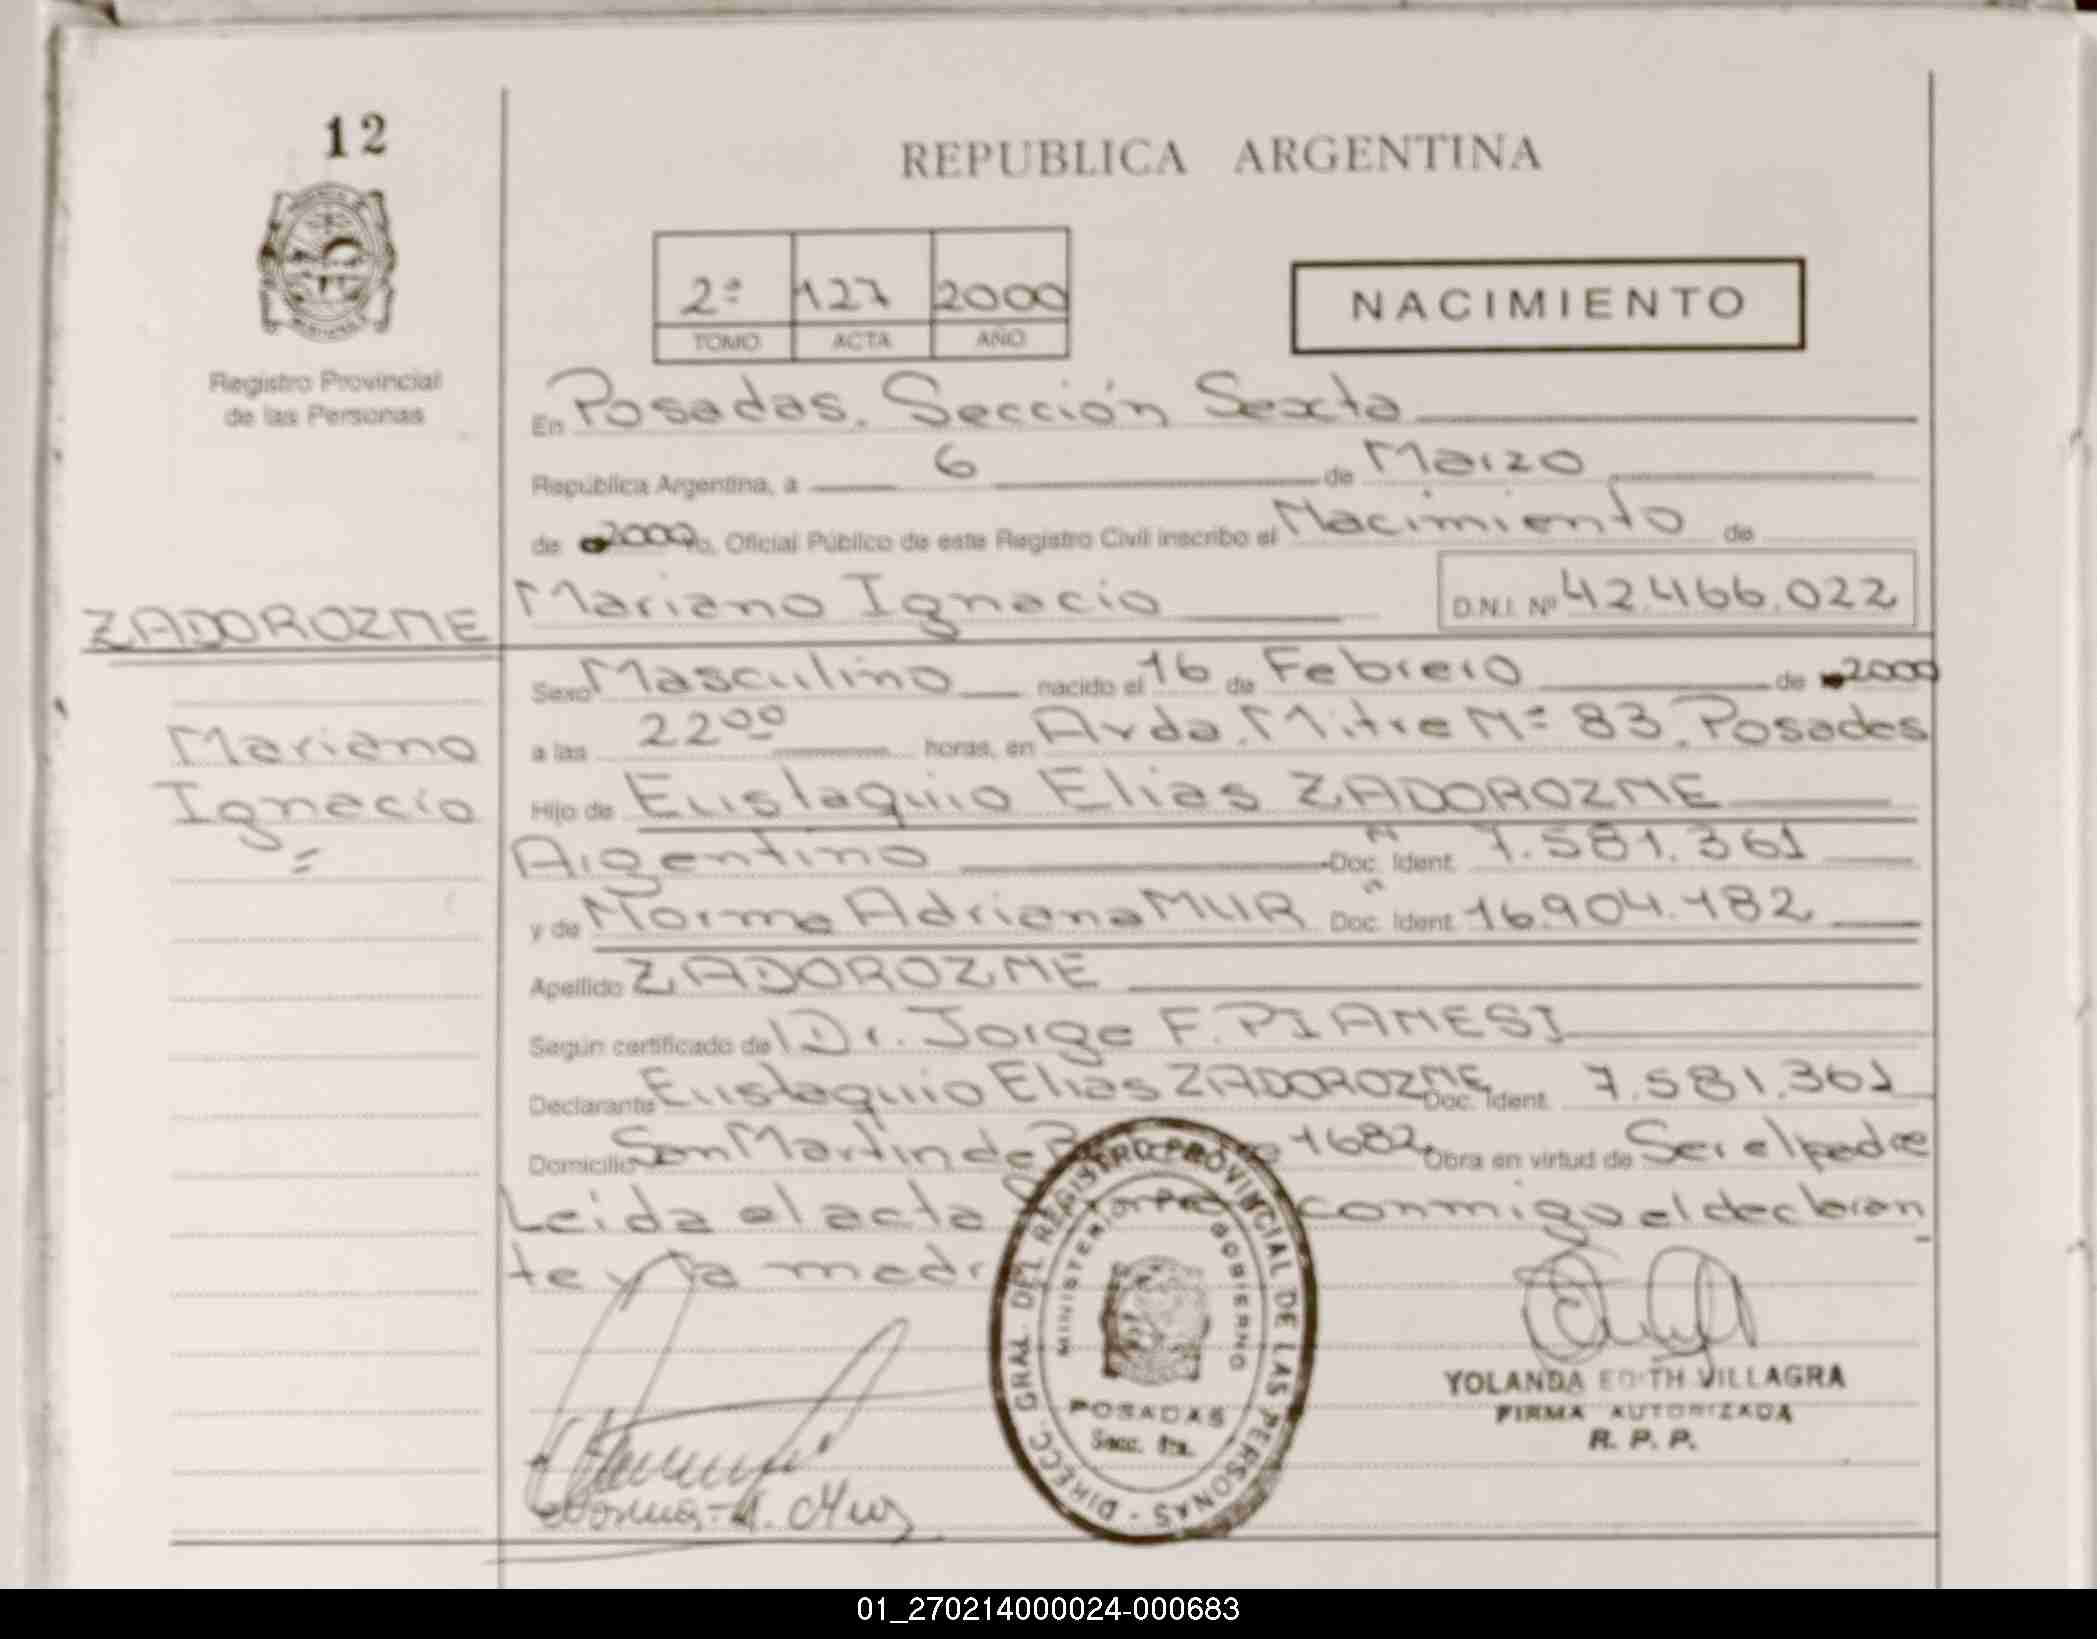 12
REPUBLICA ARGENTINA
2º 127 2000
TOMO ACTA AÑO
NACIMIENTO
Registro Provincial
de las Personas
En Posadas. Sección Sexta
República Argentina, a 6 de Marzo
de 2000 yo, Oficial Público de este Registro Civil inscribo el Nacimiento de
Mariano Ignacio D.N.I. Nº 42.466.022
ZADOROZNE
Mariano
Ignacio
Sexo Masculino nacido el 16 de Febrero de 2000
a las 22⁰⁰ horas, en Avda. Mitre Nº 83. Posadas
Hijo de Eustaquio Elias ZADOROZNE
Argentino Doc. Ident. 7.581.361
y de Norma Adriana MUR Doc. Ident. 16.904.182
Apellido ZADOROZNE
Según certificado de Dr. Jorge F. PIANESI
Declarante Eustaquio Elias ZADOROZNE Doc. Ident. 7.581.361
Domicilio San Martin de 1682 Obra en virtud de Ser el padre
Leida el acta conmigo el declaran
te y la madre
DIRECC. GRAL. DEL REGISTRO PROVINCIAL DE LAS PERSONAS
MINISTERIO DE GOBIERNO
POSADAS
Secc. 6ta.
YOLANDA EDITH VILLAGRA
FIRMA AUTORIZADA
R. P. P.
Norma A. Mur
01_270214000024-000683